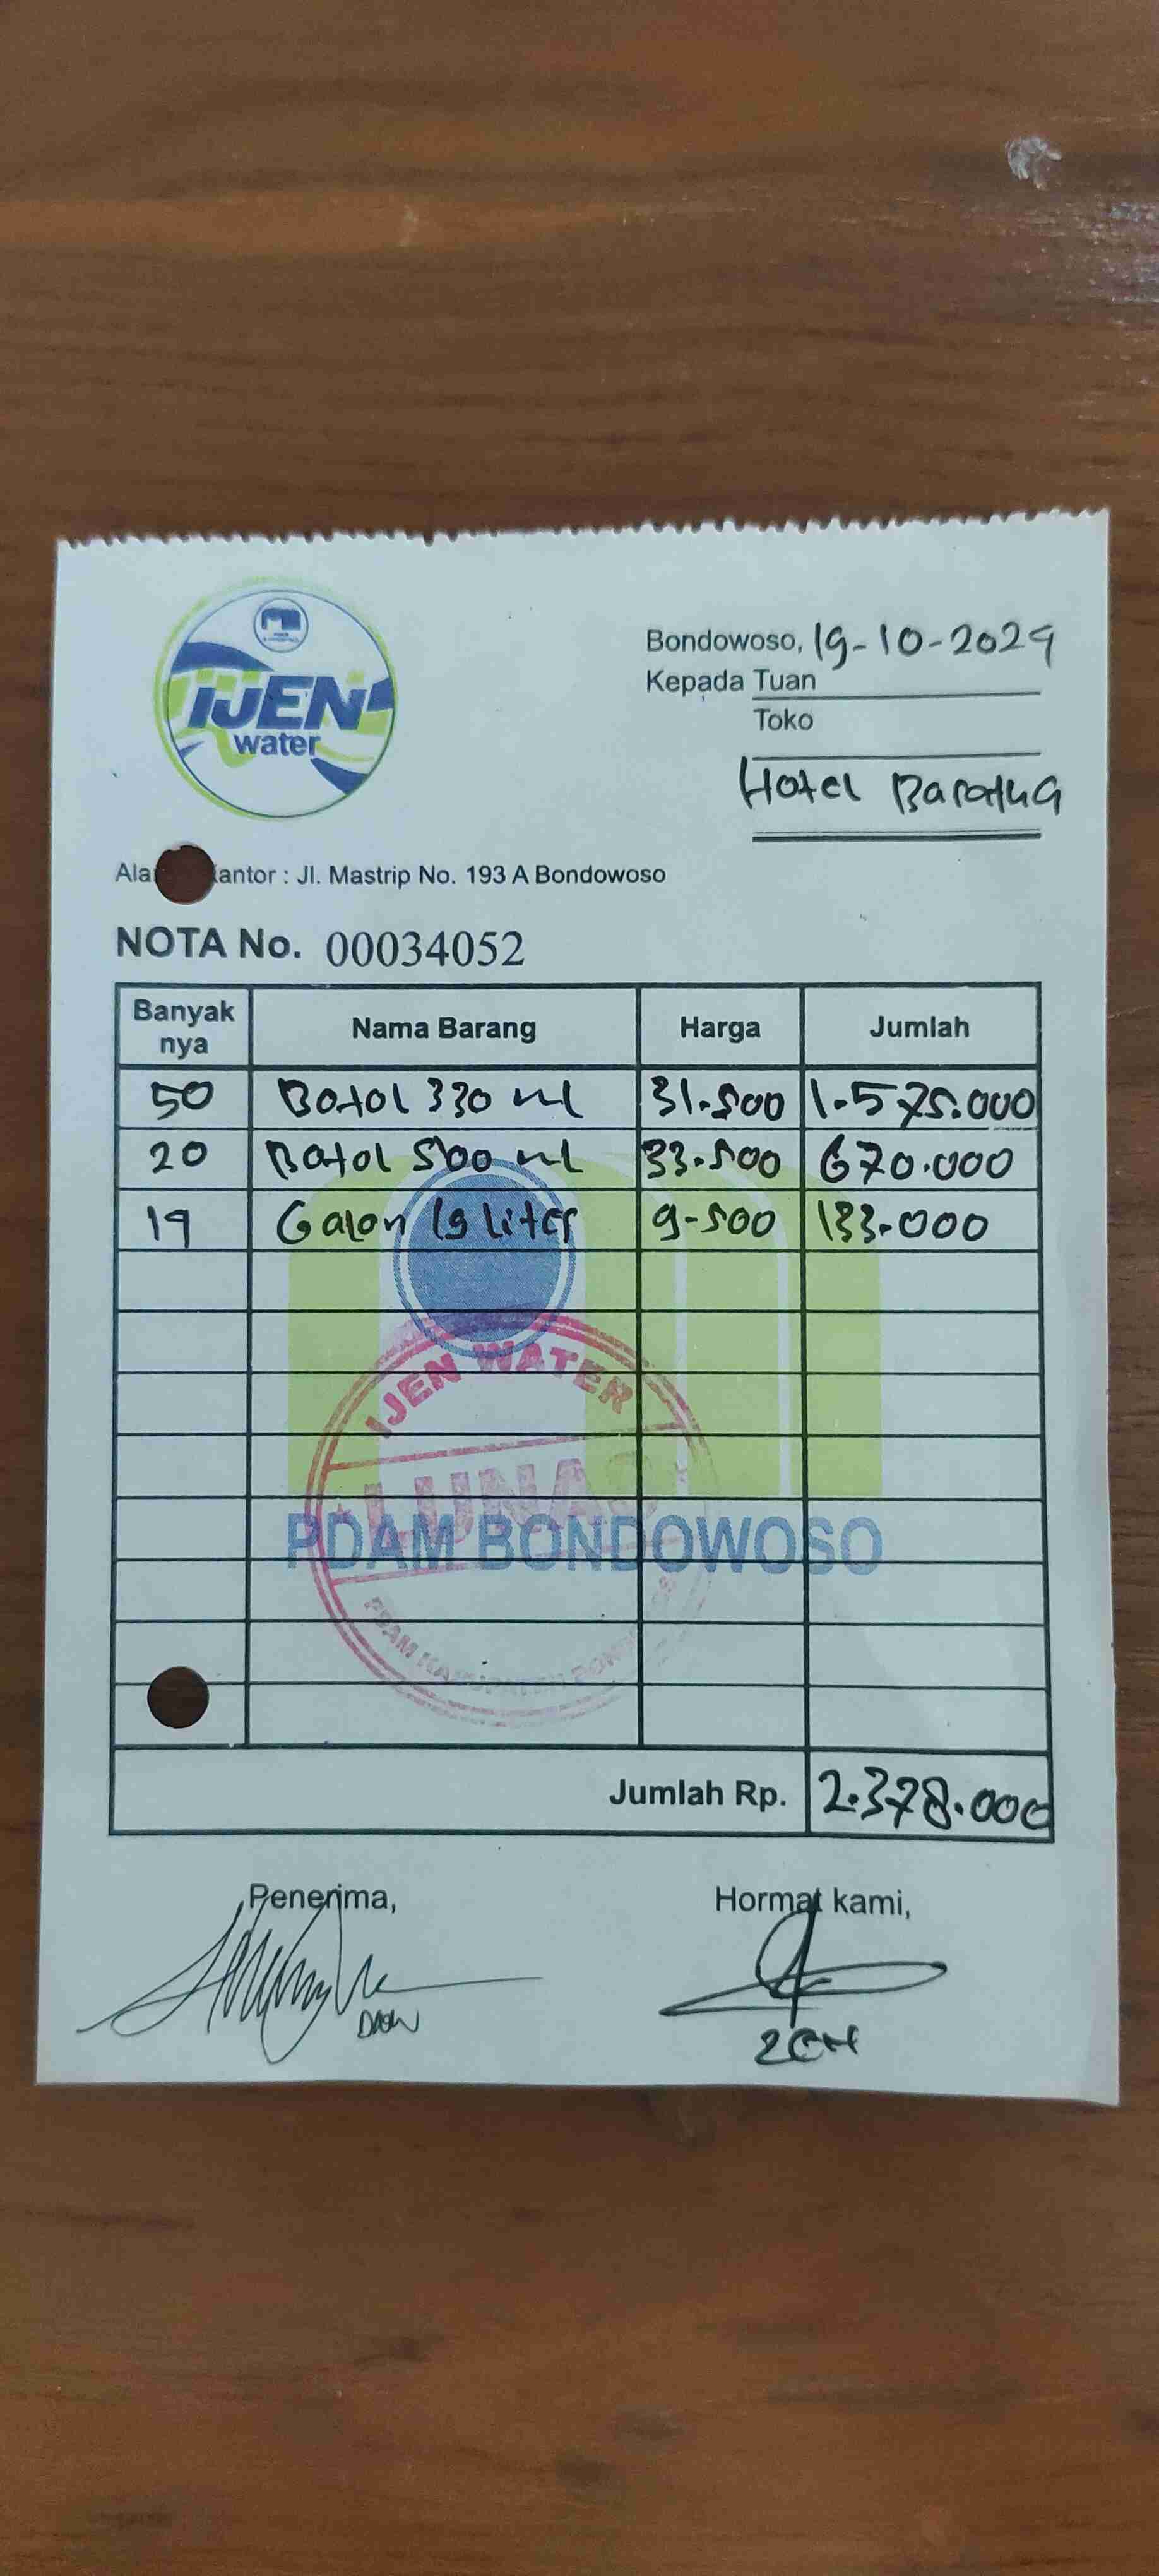 IJEN
water
Bondowoso, 19-10-2024
Kepada Tuan
Toko
Hotel Baratha
Kantor : Jl. Mastrip No. 193 A Bondowoso
NOTA No. 00034052
Banyak nya Nama Barang Harga Jumlah
50 Botol 330 ml 31.500 1.575.000
20 Botol 500 ml 33.500 670.000
14 Galon 19 liter 9.500 133.000
IJEN WATER
LUNAS
PDAM BONDOWOSO
PDAM KABUPATEN
Jumlah Rp. 2.378.000
Penerima, Hormat kami,